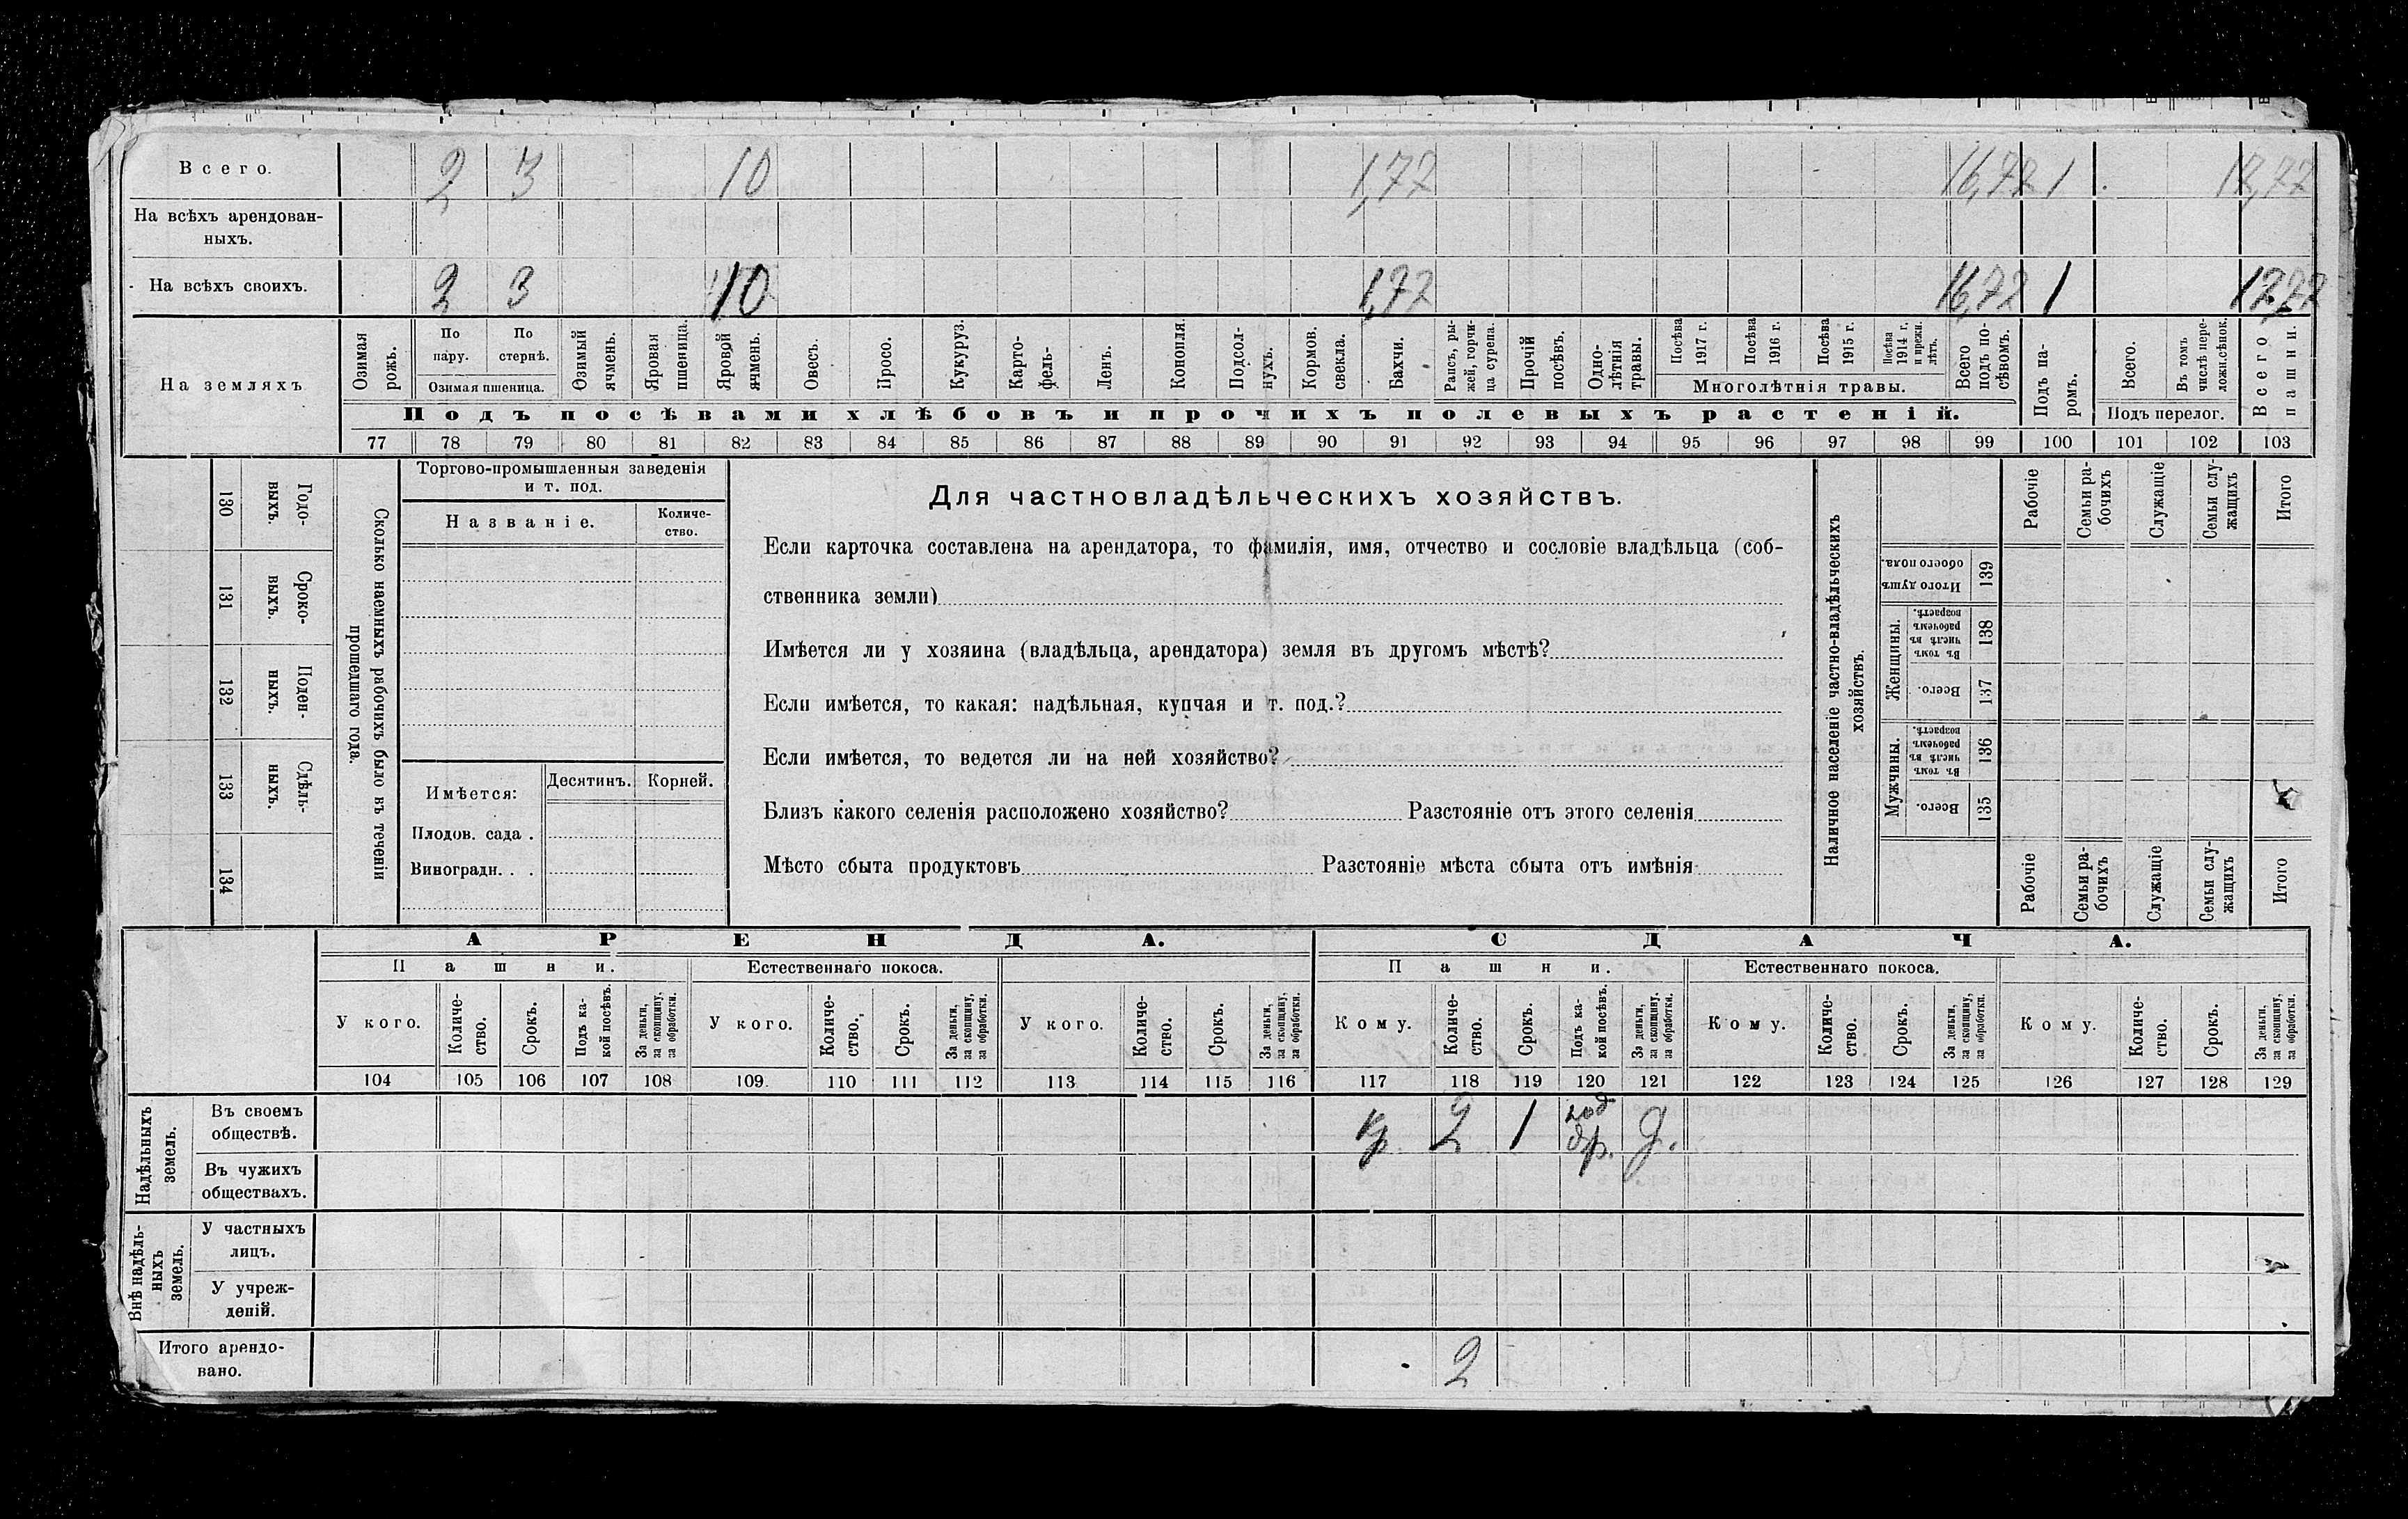 Всего. 2 3 10 1,72 16,72 1 17,72
На всѣхъ арендован-
ныхъ.
На всѣхъ своихъ. 2 3 10 1,72 16,72 1 17,72
На земляхъ
Озимая рожь.
По пару.
По стернѣ.
Озимая пшеница.
Озимый ячмень.
Яровая пшеница.
Яровой ячмень.
Овесъ.
Просо.
Кукуруз.
Карто-
фель-
Ленъ.
Конопля.
Подсол-
нухъ.
Кормов. свекла.
Бахчи.
Рапсъ, ры-
жей, горчи-
ца сурепа.
Прочій посѣвъ.
Одно-
лѣтнія травы.
Посѣва 1917 г.
Посѣва 1916 г.
Посѣва 1915 г.
Посѣва 1914 г. и прежн. лѣтъ.
Многолѣтнія травы.
Всего подъ по-
сѣвомъ.
Подъ па-
ромъ.
Всего.
Въ томъ числѣ пере-
ложн.сѣнок.
Подъ перелог.
Всего пашни.
Подъ посѣвами хлѣбовъ и прочихъ полевыхъ растеній.
77 78 79 80 81 82 83 84 85 86 87 88 89 90 91 92 93 94 95 96 97 98 99 100 101 102 103
130 Годо-
выхъ.
131 Сроко-
выхъ.
132 Поден-
ныхъ.
133 Сдѣль-
ныхъ.
134
Сколько наемныхъ рабочихъ было въ теченіи
прошедшаго года.
Торгово-промышленныя заведенія
и т. под.
Названіе.
Количе-
ство.
Имѣется: Десятинъ. Корней.
Плодов. сада .
Виноградн. . .
Для частновладѣльческихъ хозяйствъ.
Если карточка составлена на арендатора, то фамилія, имя, отчество и сословіе владѣльца (соб-
ственника земли)
Имѣется ли у хозяина (владѣльца, арендатора) земля въ другомъ мѣстѣ?
Если имѣется, то какая: надѣльная, купчая и т. под.?
Если имѣется, то ведется ли на ней хозяйство?
Близъ какого селенія расположено хозяйство? Разстояніе отъ этого селенія
Мѣсто сбыта продуктовъ Разстояніе мѣста сбыта отъ имѣнія
Наличное населеніе частно-владѣльческихъ
хозяйствъ.
Рабочіе
Семьи ра-
бочихъ
Служащіе
Семьи слу-
жащихъ
Итого
Итого душъ обоего пола. 139
Женщины.
Въ томъ числѣ въ рабочемъ возрастѣ. 138
Всего. 137
Мужчины.
Въ томъ числѣ въ рабочемъ возрастѣ. 136
Всего. 135
Рабочіе
Семьи ра-
бочихъ
Служащіе
Семьи слу-
жащихъ
Итого
АРЕНДА. СДАЧА.
Пашни. Естественнаго покоса. Пашни. Естественнаго покоса.
У кого.
Количе-
ство.
Срокъ.
Подъ ка-
кой посѣвъ.
За деньги, за скопщину, за обработки.
У кого.
Количе-
ство.
Срокъ.
За деньги, за скопщину, за обработки.
У кого.
Количе-
ство.
Срокъ.
За деньги, за скопщину, за обработки.
Кому.
Количе-
ство.
Срокъ.
Подъ ка-
кой посѣвъ.
За деньги, за скопщину, за обработки.
Кому.
Количе-
ство.
Срокъ.
За деньги, за скопщину, за обработки.
Кому.
Количе-
ство.
Срокъ.
За деньги, за скопщину, за обработки.
104 105 106 107 108 109. 110 111 112 113 114 115 116 117 118 119 120 121 122 123 124 125 126 127 128 129
Надѣльныхъ земель.
Въ своемъ
обществѣ. 2 1 д.
Въ чужихъ
обществахъ.
Внѣ надѣль-
ныхъ земель.
У частныхъ
лицъ.
У учреж-
деній.
Итого арендо-
вано. 2